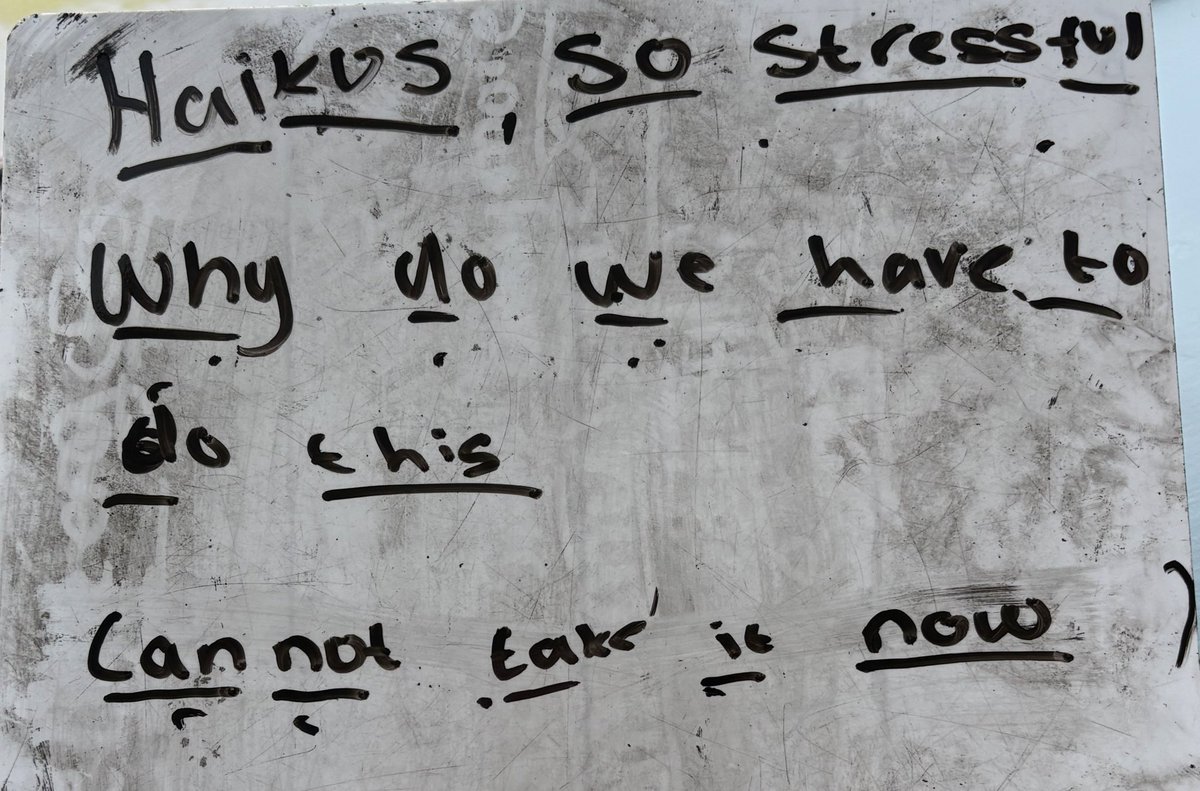 Haikus, so stressful
Why do we have to
do this
Cannot take it now